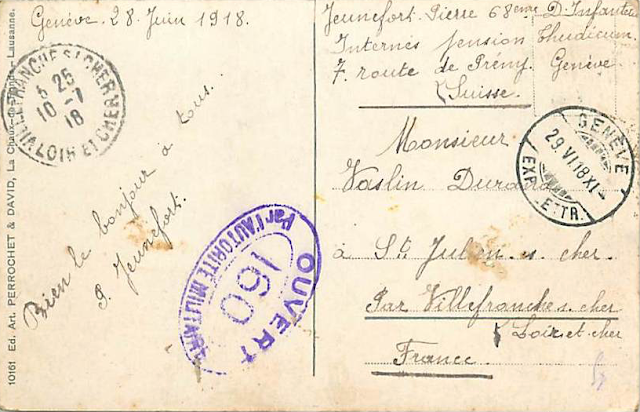 Genève. 28. Juin 1918.
Jeunefort. Pierre 68eme D'Infanterie
Internés pension Thudicum
7. route de Prégny. Genève
Suisse.
VILLEFRANCHE S/ CHER
5 25
10 -7
18
LOIR ET CHER
GENÈVE
29.VI.18.XI
EXP. LETTR.
Monsieur
Vaslin Durand
à St Julien. s. cher.
Par Villefranche s. cher
Loir et cher
France
Bien le bonjour à tous.
P. Jeunefort.
OUVERT
Par l'AUTORITÉ MILITAIRE
160
10161 Ed. Art. PERROCHET & DAVID, La Chaux-de-Fonds - Lausanne.